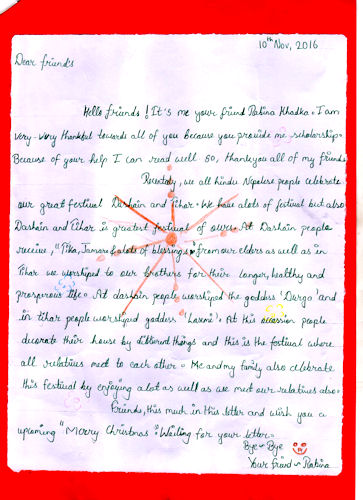 10th Nov, 2016
Dear friends
Hello friends! It's me your friend Rabina Khadka. I am
very-very thankful towards all of you because you provide me scholarship.
Because of your help I can read well so, thankyou all of my friends
Recentaly, we all hindu Nepolese people celebrate
our great festival Dashain and Tihar. We have alots of festival but also
Dashain and Tihar is greatest festival of ours. At Dashain people
receive, "Tika, Jamara & alots of blessings" from our elders as well as in
Tihar we worshiped to our brothers for their longer, healthy and
prosperous life. At dashain people worshiped the goddess 'Durga' and
in tihar people worshiped goddess 'Laxmi'. At this occassion people
decorate their house by different things and this is the festival where
all relatives meet to each other. Me and my family also celebrate
this festival by enjoying alot as well as we meet our relatives also.
Friends, this much in this letter and wish you a
upcoming "Merry Christmas". Waiting for your letter.
Bye-Bye
Your friend - Rabina